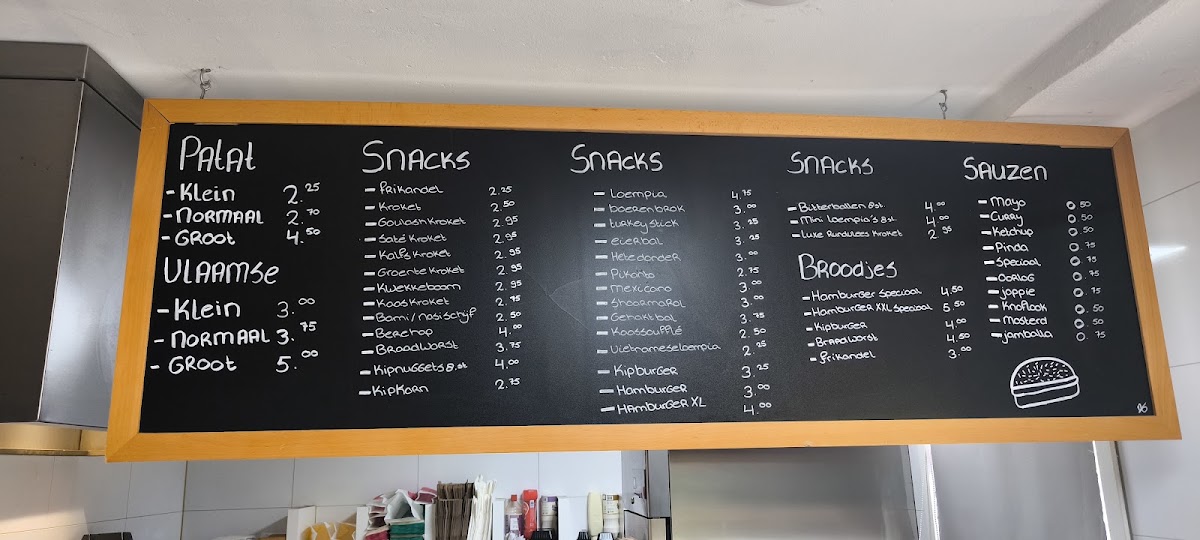 Patat
- Klein 2.25
- Normaal 2.70
- Groot 4.50
Vlaamse
- Klein 3.00
- Normaal 3.75
- Groot 5.00
Snacks
- Frikandel 2.25
- Kroket 2.50
- Goulash Kroket 2.95
- Saté Kroket 2.95
- Kalfs Kroket 2.95
- Groente Kroket 2.95
- Kwekkeboom 2.95
- Kaas Kroket 2.75
- Bami/nasischijf 2.50
- Berehap 4.00
- Braadworst 3.75
- Kipnuggets 8.st 4.00
- Kipkorn 2.75
Snacks
- Loempia 4.75
- boerenbrok 3.00
- turkey stick 3.25
- eierbal 3.25
- Hete donder 3.00
- Pikanto 2.75
- Mexicano 3.00
- Shoarmarol 3.00
- Gehaktbal 3.75
- Kaassoufflé 2.50
- Vietnameseloempia 2.25
- Kipburger 3.25
- Hamburger 3.00
- Hamburger XL 4.00
Snacks
- Bitterballen 8st. 4.00
- Mini loempia's 8st 4.00
- Luxe Rundvlees Kroket 2.95
Broodjes
- Hamburger Speciaal 4.50
- Hamburger XXL Speciaal 5.50
- Kipburger 4.00
- Braadworst 4.50
- frikandel 3.00
Sauzen
- Mayo 0.50
- Curry 0.50
- Ketchup 0.50
- Pinda 0.75
- Speciaal 0.75
- Oorlog 0.75
- joppie 0.75
- Knoflook 0.50
- mosterd 0.50
- jamballa 0.75